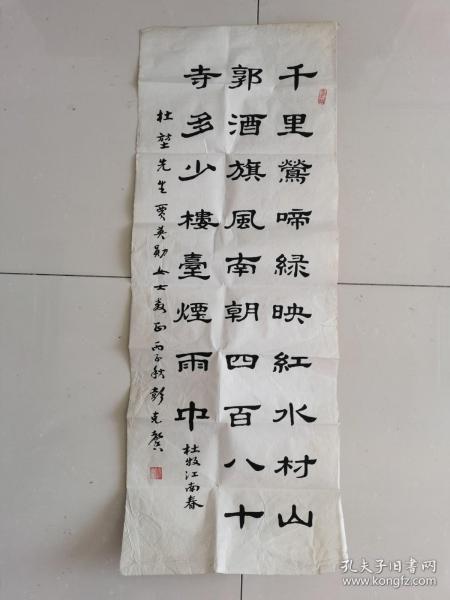 千里鶯啼緑映紅水村山
郭酒旗風南朝四百八十
寺多少樓臺煙雨中
杜牧江南春
先生贾英勋女士教正丙子秋彭克
孔夫子旧书网
www.kongfz.com